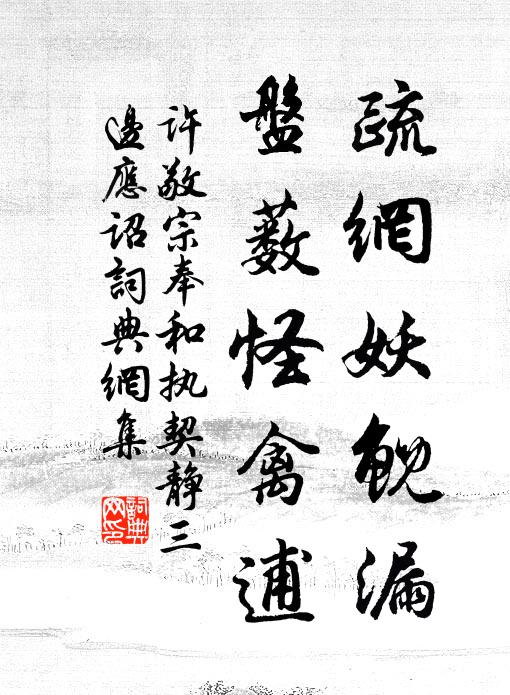 疏網妖鯢漏
盤薮怪禽逋
许敬宗奉和执契静三
邊應詔詞典網集
詞典網印